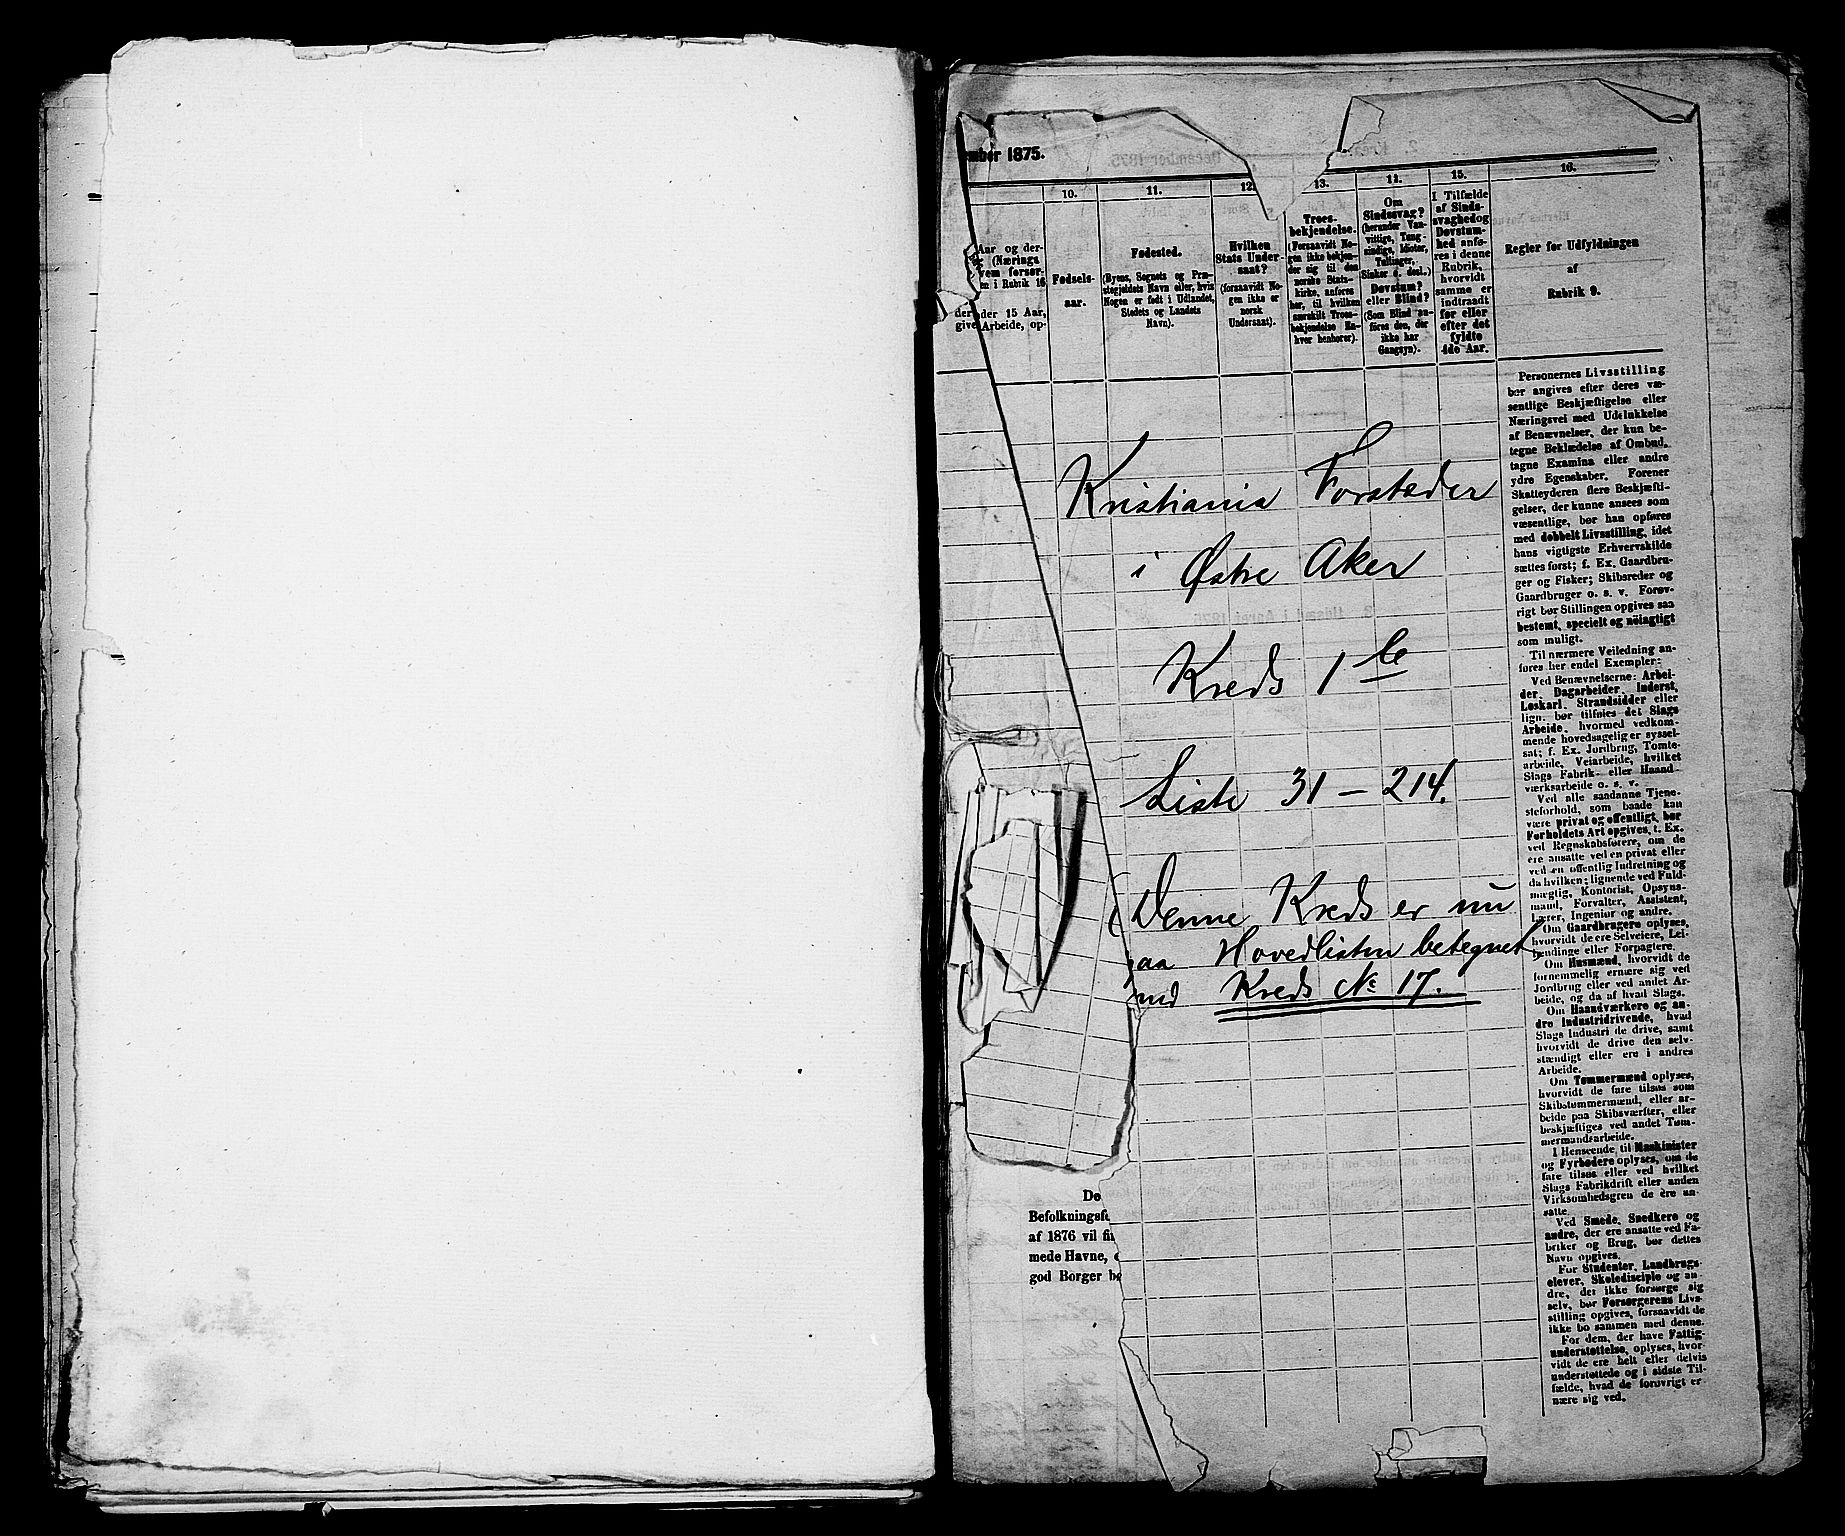 ember 1875.
10.
11.
12.
13.
14.
15.
16.
Aar og der-
(Nærings
vem forsør-
en i Rubrik 16
der der 15 Aar,
give Arbeide, op-
Fødsels-
aar.
Fødested.
(Byens, Sognets og Præ-
stegjeldets Navn eller, hvis
Nogen er født i Udlandet,
Stedets og Landets
Navn).
Hvilken
Stats Under-
saat?
(forsaavidt No-
gen ikke er
norsk
Undersaat).
Troes-
bekjendelse.
(Forsaavidt No-
gen ikke bekjen-
der sig til den
norske Stats-
kirke, anføres
her, til hvilken
særskilt Troes-
bekjendelse En-
hver henhører).
Om
Sindssvag?
(herunder Van-
vittige, Tung-
sindige, Idioter,
Tullinger,
Sinker o. desl.)
Døvstum?
eller Blind?
(Som Blind an-
føres den, der
ikke har
Gangsyn).
I Tilfælde
af Sinds-
svaghed og
Døvstum-
hed anfø-
res i denne
Rubrik,
hvorvidt
samme er
indtraadt
før eller
efter det
fyldte
4de Aar.
Regler for Udfyldningen
af
Rubrik 9.
Kristiania Forstæder
i Østre Aker
Kreds 1 b
Liste 31 – 214.
(Denne Kreds er nu
paa Hovedlisten betegnet
ved Kreds № 17.
De
Befolkningsfo
af 1876 vil fi
mede Havne, e
god Borger bø
Personernes Livsstilling
bør angives efter deres væ-
sentlige Beskjæftigelse eller
Næringsvei med Udelukkelse
af Benævnelser, der kun be-
tegne Beklædelse af Ombud,
tagne Examina eller andre
ydre Egenskaber. Forener
Skatteyderen flere Beskjæfti-
gelser, der kunne ansees som
væsentlige, bør han opføres
med dobbelt Livsstilling, idet
hans vigtigste Erhvervskilde
sættes først; f. Ex. Gaardbru-
ger og Fisker; Skibsreder og
Gaardbruger o. s. v. Forøv-
rigt bør Stillingen opgives saa
bestemt, specielt og nöiagtigt
som muligt.
Til nærmere Veiledning an-
føres her endel Exempler:
Ved Benævnelserne: Arbei-
der, Dagarbeider, Inderst,
Løskarl, Strandsidder eller
lign. bør tilføies det Slags
Arbeide, hvormed vedkom-
mende hovedsagelig er syssel-
sat; f. Ex. Jordbrug, Tomte-
arbeide, Veiarbeide, hvilket
Slags Fabrik- eller Haand-
værksarbeide o. s. v.
Ved alle saadanne Tjene-
steforhold, som baade kan
være privat og offentligt, bør
Forholdets Art opgives, t. Ex.
ved Regnskabsførere, om de
ere ansatte ved en privat eller
ved en offentlig Indretning og
da hvilken; lignende ved Fuld-
mægtig, Kontorist, Opsyns-
mand, Forvalter, Assistent,
Lærer, Ingeniør og andre.
Om Gaardbrugere oplyses,
hvorvidt de ere Selveiere, Lei-
lændinge eller Forpagtere.
Om Husmænd, hvorvidt de
fornemmelig ernære sig ved
Jordbrug eller ved andet Ar-
beide, og da af hvad Slags.
Om Haandværkere og an-
dre Industridrivende, hvad
Slags Industri de drive, samt
hvorvidt de drive den selv-
stændigt eller ere i andres
Arbeide.
Om Tømmermænd oplyses,
hvorvidt de fare tilsøs som
Skibstømmermænd, eller ar-
beide paa Skibsværfter, eller
beskjæftiges ved andet Tøm-
mermandsarbeide.
I Henseende til Maskinister
og Fyrbødere oplyses, om de
fare tilsøs eller ved hvilket
Slags Fabrikdrift eller anden
Virksomhedsgren de ere an-
satte.
Ved Smede, Snedkere og
andre, der ere ansatte ved Fa-
briker og Brug, bør dettes
Navn opgives.
For Studenter, Landbrugs-
elever, Skoledisciple og an-
dre, der ikke forsørge sig
selv, bør Forsørgerens Livs-
stilling opgives, forsaavidt de
ikke bo sammen med denne.
For dem, der have Fattig-
understøttelse, oplyses, hvor-
vidt de ere helt eller delvis
understøttede og i sidste Til-
fælde, hvad de forøvrigt er-
nære sig ved.